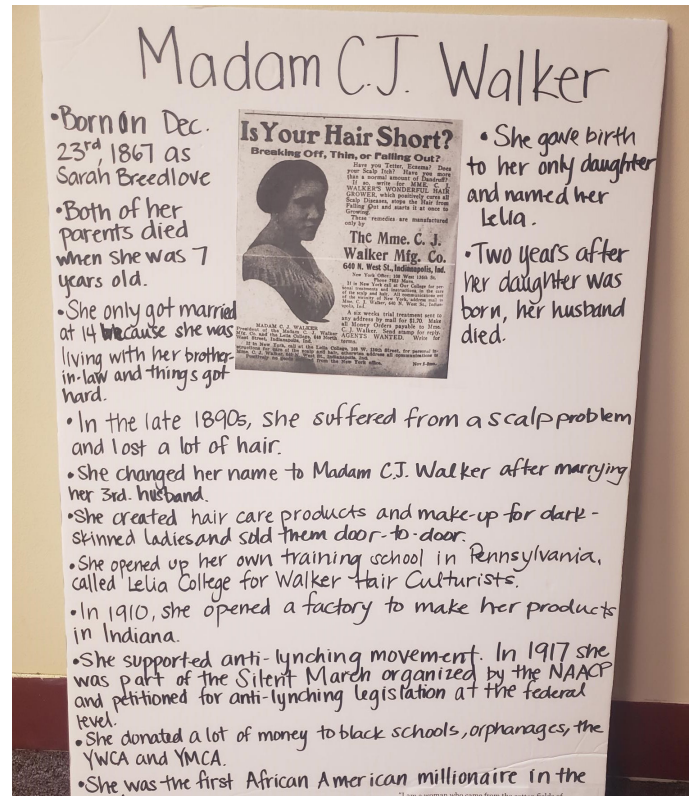 Madam C.J. Walker
•Born on Dec.
23rd, 1867 as
Sarah Breedlove
•Both of her
parents died
when she was 7
years old.
•She only got married
at 14 because she was
living with her brother-
in-law and things got
hard.
Is Your Hair Short?
Breaking Off, Thin, or Falling Out?
Have you Tetter, Eczema? Does
your Scalp Itch? Have you more
than a normal amount of Dandruff?
If so, write for MME. C. J.
WALKER'S WONDERFUL HAIR
GROWER, which positively cures all
Scalp Diseases, stops the Hair from
Falling Out and starts it at once to
Growing.
These remedies are manufactured
only by
The Mme. C. J.
Walker Mfg. Co.
640 N. West St., Indianapolis, Ind.
A six weeks trial treatment sent to
any address by mail for $1.70. Make
all Money Orders payable to Mme.
C. J. Walker. Send stamp for reply.
AGENTS WANTED. Write for
terms.
MADAM C. J. WALKER
• She gave birth
to her only daughter
and named her
Lelia.
•Two years after
her daughter was
born, her husband
died.
•In the late 1890s, she suffered from a scalp problem
and lost a lot of hair.
•She changed her name to Madam C.J. Walker after marrying
her 3rd. husband.
•She created hair care products and make-up for dark-
skinned ladies and sold them door-to-door.
•She opened up her own training school in Pennsylvania,
called Lelia College for Walker Hair Culturists.
•In 1910, she opened a factory to make her products
in Indiana.
•She supported anti-lynching movement. In 1917 she
was part of the Silent March organized by the NAACP
and petitioned for anti-lynching legislation at the federal
level.
•She donated a lot of money to black schools, orphanages, the
YWCA and YMCA.
•She was the first African American millionaire in the
"I am a woman who came from the cotton fields of